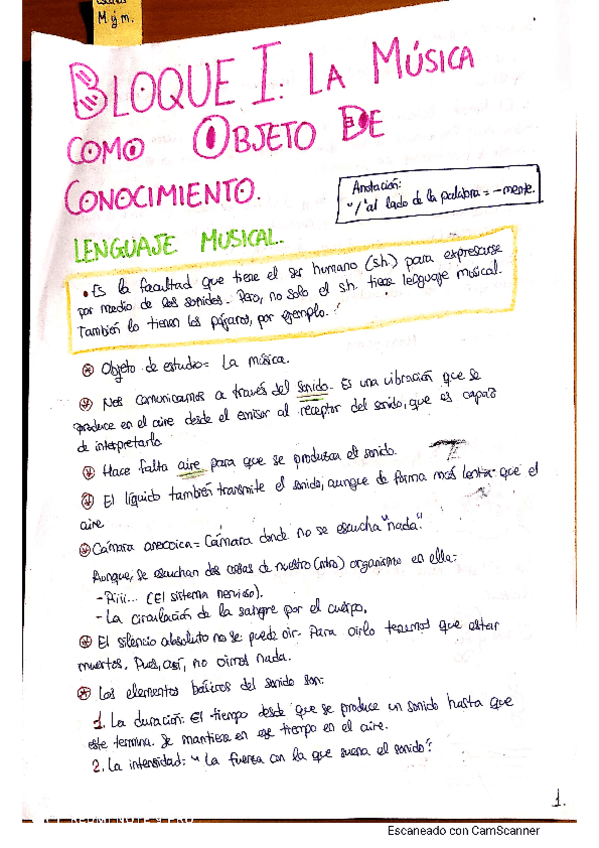 M y m.
BLOQUE I: LA MÚSICA
COMO OBJETO DE
CONOCIMIENTO.
Anotación:
"/" al lado de la palabra = -mente.
LENGUAJE MUSICAL.
• Es la facultad que tiene el ser humano (sh.) para expresarse
por medio de los sonidos. Pero, no solo el sh. tiene lenguaje musical.
También lo tienen los pájaros, por ejemplo.
Objeto de estudio = La música.
Nos comunicamos a través del sonido. Es una vibración que se
produce en el aire desde el emisor al receptor del sonido, que es capaz
de interpretarlo
Hace falta aire para que se produzca el sonido.
El líquido también transmite el sonido, aunque de forma más lenta que el
aire
Cámara anecoica = Cámara donde no se escucha "nada".
Aunque, se escuchan dos cosas de nuestro (ntro) organismo en ella:
- Piiii... (El sistema nervioso).
- La circulación de la sangre por el cuerpo.
El silencio absoluto no se puede oir. Para oirlo tenemos que estar
muertos. Pues, así, no oimos nada.
Los elementos básicos del sonido son:
1. La duración: El tiempo desde que se produce un sonido hasta que
este termina. Se mantiene en ese tiempo en el aire.
2. La intensidad: "La fuerza con la que suena el sonido".
1.
REDMI NOTE 9 PRO
Escaneado con CamScanner